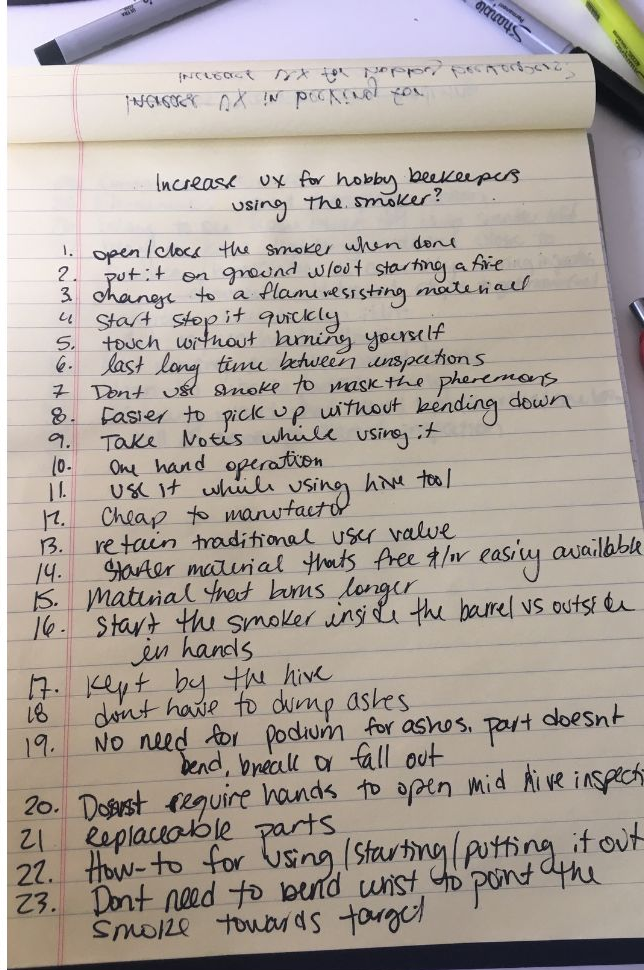 Sharpie
Increase UX for hobby beekeepers?
Increase UX in for
Increase UX for hobby beekeepers
using the smoker?
1. open/close the smoker when done
2. put it on ground w/out starting a fire
3. change to a flame resisting material
4 Start stop it quickly
5. touch without burning yourself
6. last long time between inspections
7 Dont use smoke to mask the pheremons
8. Easier to pick up without bending down
9. Take Notes while using it
10. One hand operation
11. use it while using hive tool
12. Cheap to manufactur
13. retain traditional user value
14. Starter material thats free &/or easily available
15. Material that burns longer
16. Start the smoker inside the barrel vs outside
in hands
17. Kept by the hive
18 dont have to dump ashes
19. No need for podium for ashes. part doesnt
bend, break or fall out
20. Doesnt require hands to open mid hive inspecti
21 Replaceable parts
22. How-to for using/starting/putting it out
23. Dont need to bend wrist to point the
smoke towards target